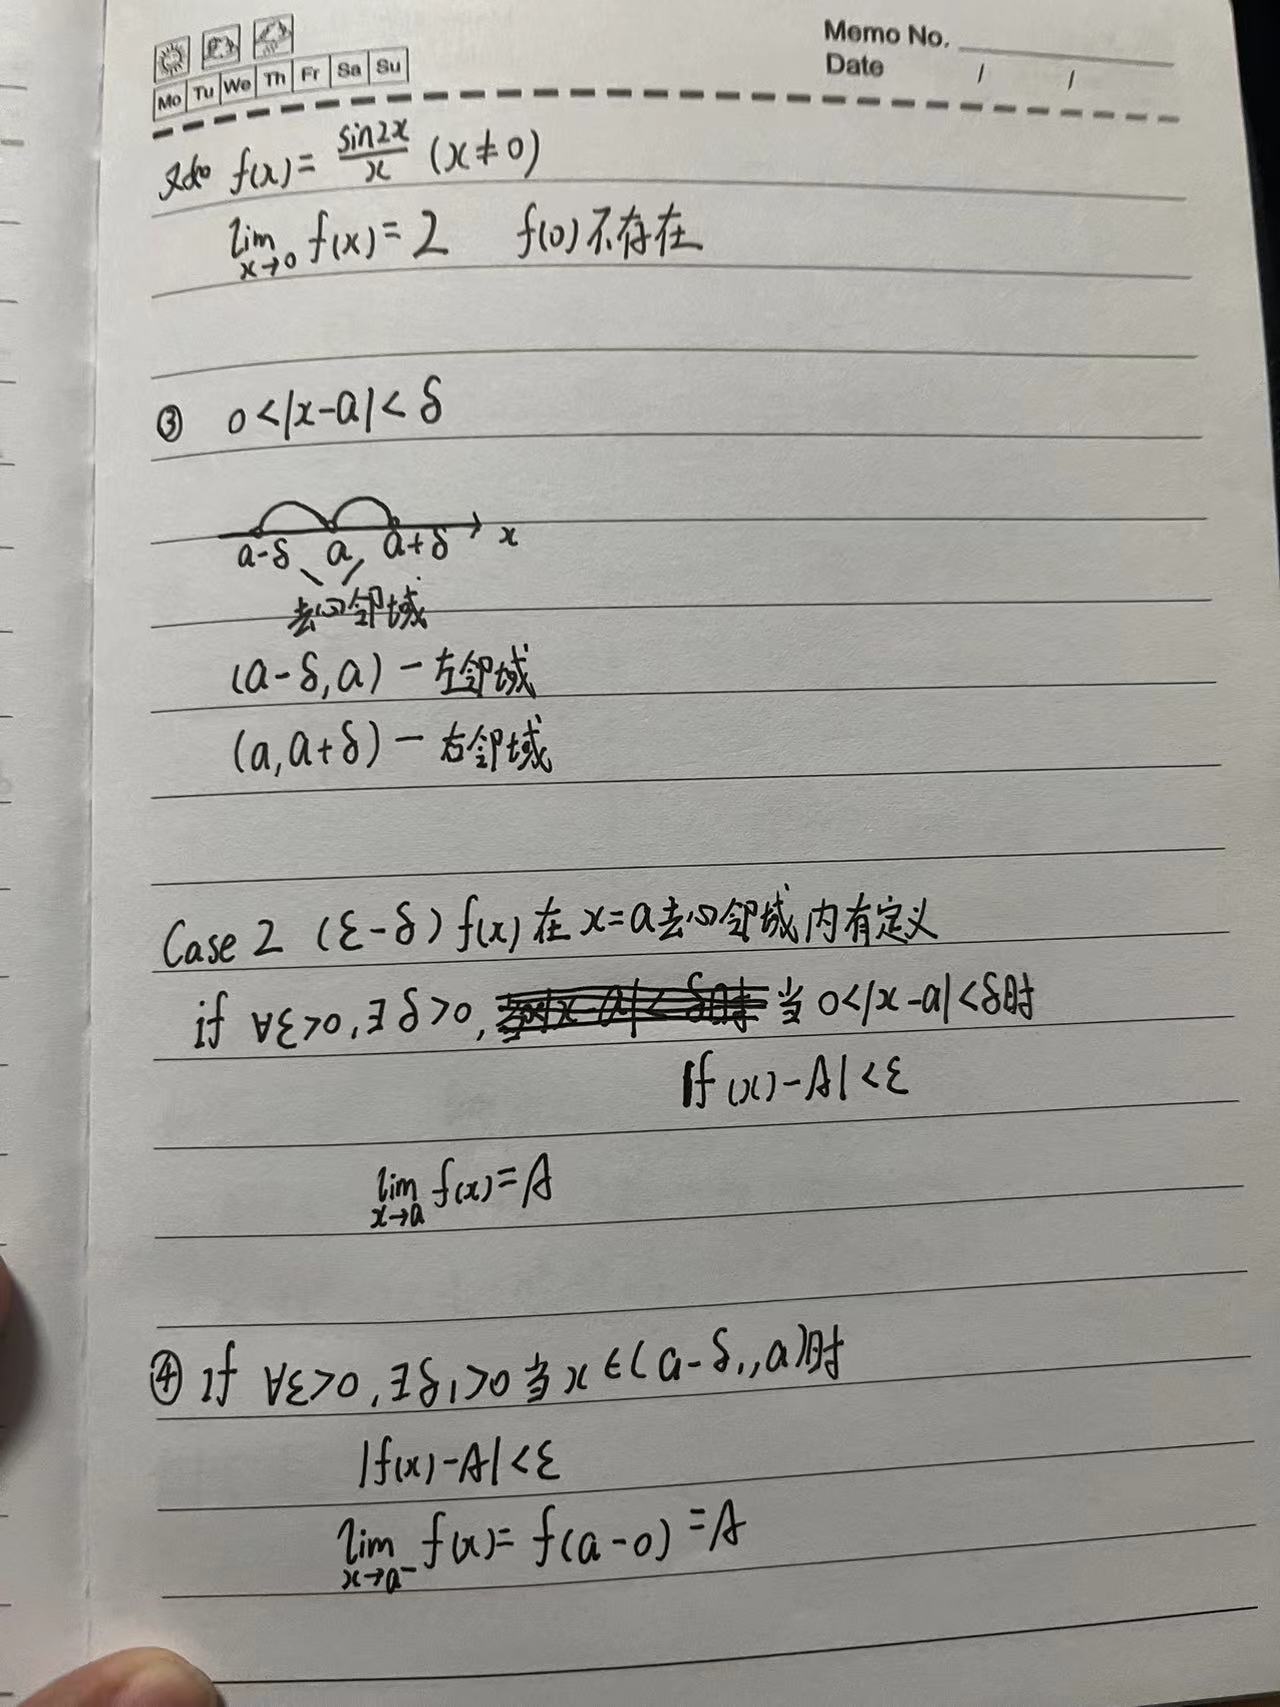 Memo No.
Mo Tu We Th Fr Sa Su
Date / /
如 f(x)= sin2x/x (x≠0)
lim x→0 f(x)=2 f(0)不存在
③ 0<|x-a|<δ
a-δ a a+δ x
去心邻域
(a-δ,a)-左邻域
(a,a+δ)-右邻域
Case 2 (ε-δ) f(x)在x=a去心邻域内有定义
if ∀ε>0,∃δ>0, 当0<|x-a|<δ时
|f(x)-A|<ε
lim x→a f(x)=A
④ if ∀ε>0,∃δ₁>0当x∈(a-δ₁,a)时
|f(x)-A|<ε
lim x→a⁻ f(x)=f(a-0)=A